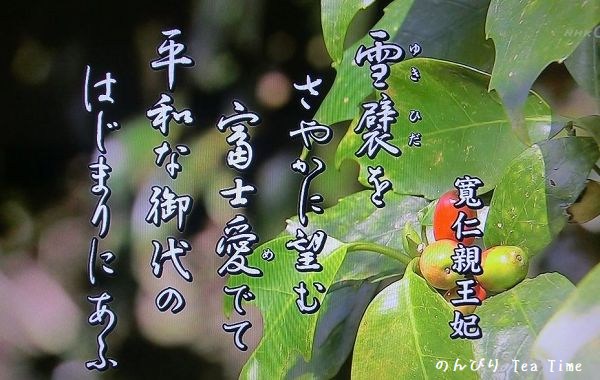 雪襞を
ゆきひだ
さやかに望む
富士愛でて
め
平和な御代の
はじまりにあふ
寬仁親王妃
NHK
のんびり Tea Time